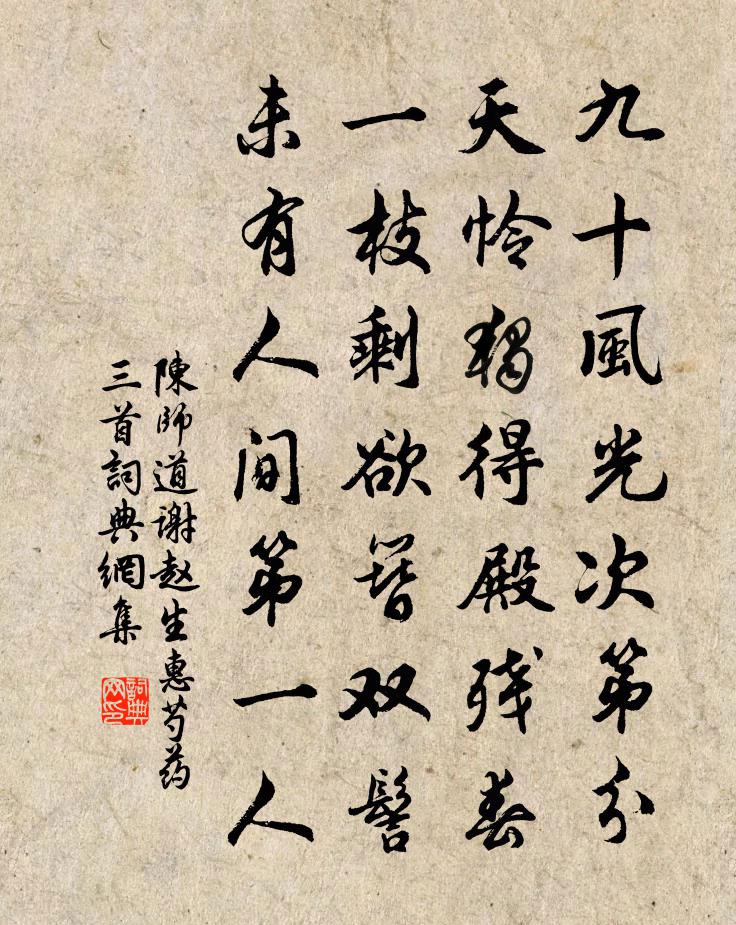 九十風光次第分
天怜獨得殿残春
一枝剩欲簪双髻
未有人间第一人
陳師道谢赵生惠芍药
三首詞典網集
詞典网印